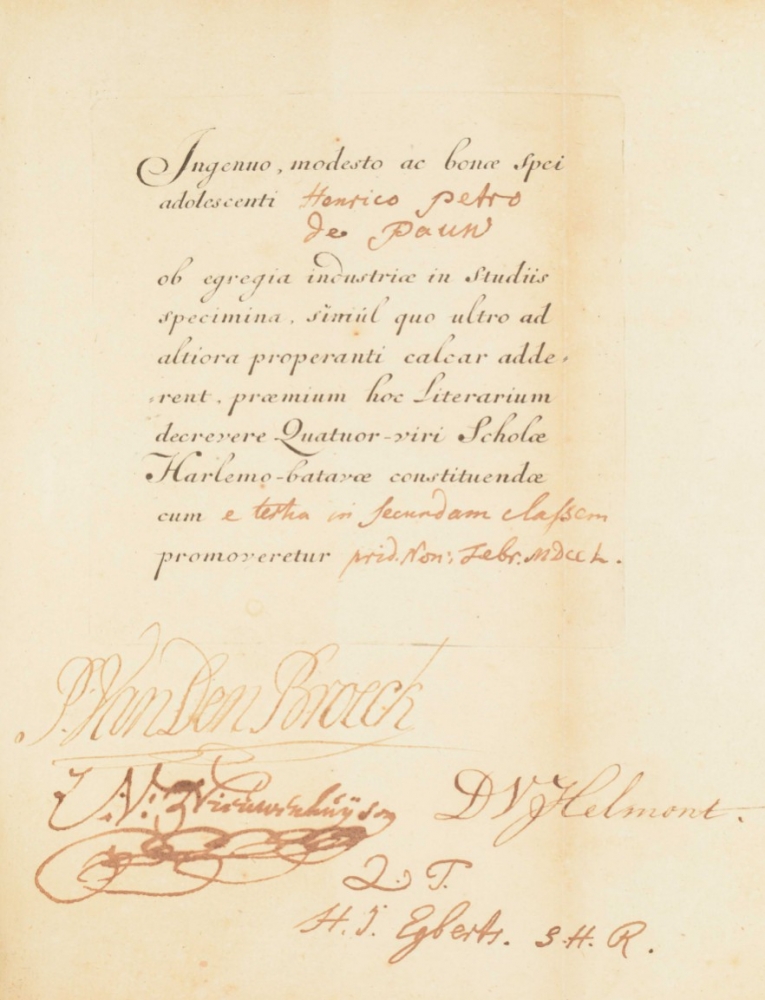 Ingenuo, modesto ac bonæ Spei
adolescenti Henrico Petro
de Pauw
ob egregia industriæ in Studiis
specimina, simùl quo ultro ad
altiora properanti calcar adde-
-rent, præmium hoc Literarium
decrevere Quatuor-viri Scholæ
Harlemo-batavæ constituendæ
cum e tertia in secundam classem
promoveretur prid. Non: Febr. MDCCL.
P. Van Den Broeck
N: Nieuwenhuÿsen
D V Helmont.
Q. T.
H. J. Egberts. S. H. R.